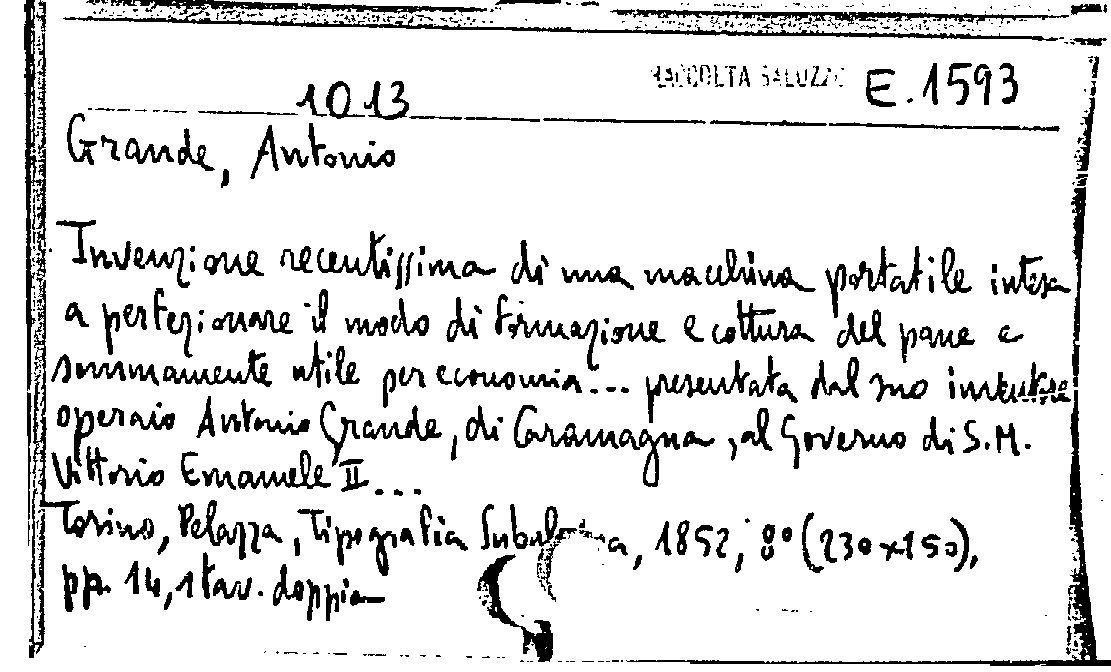 RACCOLTA SALUZZO E.1593
1013
Grande, Antonio
Invenzione recentissima di una macchina portatile intesa
a perfezionare il modo di formazione e cottura del pane e
sommamente utile per economia... presentata dal suo inventore
operaio Antonio Grande, di Caramagna, al Governo di S.M.
Vittorio Emanuele II...
Torino, Pelazza, Tipografia Subalpina, 1852, 8° (230x150),
pp. 14, 1 tav. doppia